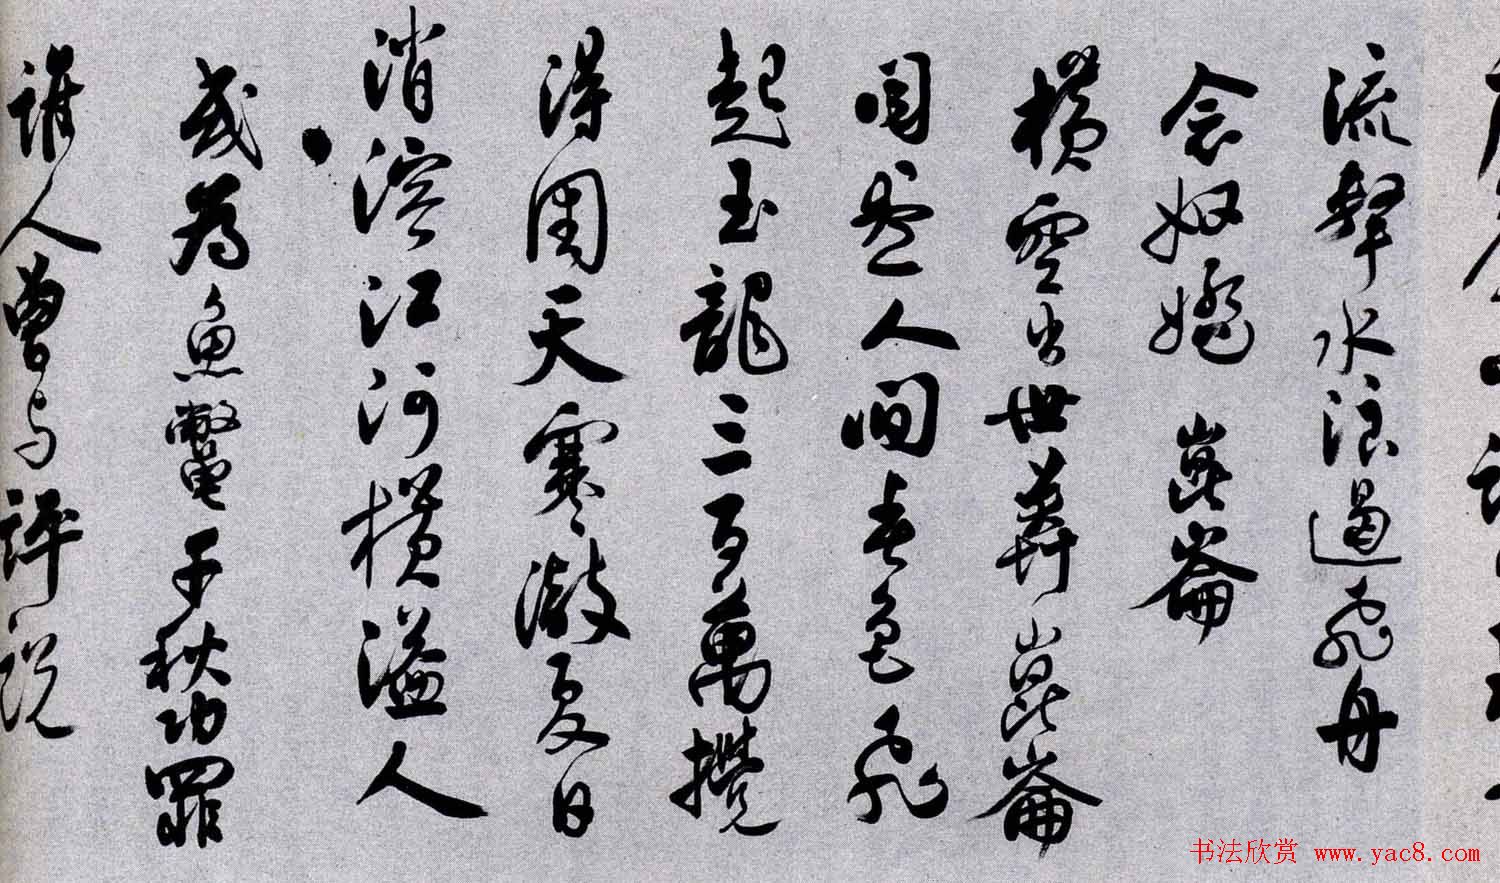 流擊水浪遏飛舟
念奴嬌 崑崙
橫空出世莽崑崙
閱盡人間春色飛
起玉龍三百萬攪
得周天寒澈夏日
消溶江河橫溢人
或為魚鱉千秋功罪
誰人曾与評說
书法欣赏 www.yac8.com